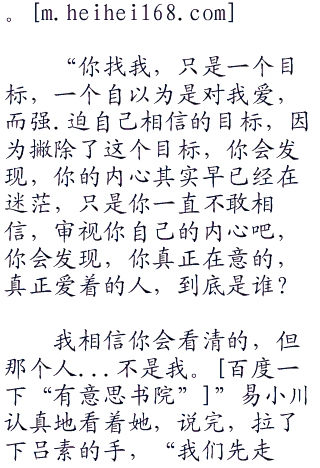 。[m.heihei168.com]
“你找我，只是一个目
标，一个自以为是对我爱，
而强.迫自己相信的目标，因
为撇除了这个目标，你会发
现，你的内心其实早已经在
迷茫，只是你一直不敢相
信，审视你自己的内心吧，
你会发现，你真正在意的，
真正爱着的人，到底是谁？
我相信你会看清的，但
那个人...不是我。[百度一
下“有意思书院”]”易小川
认真地看着她，说完，拉了
下吕素的手，“我们先走